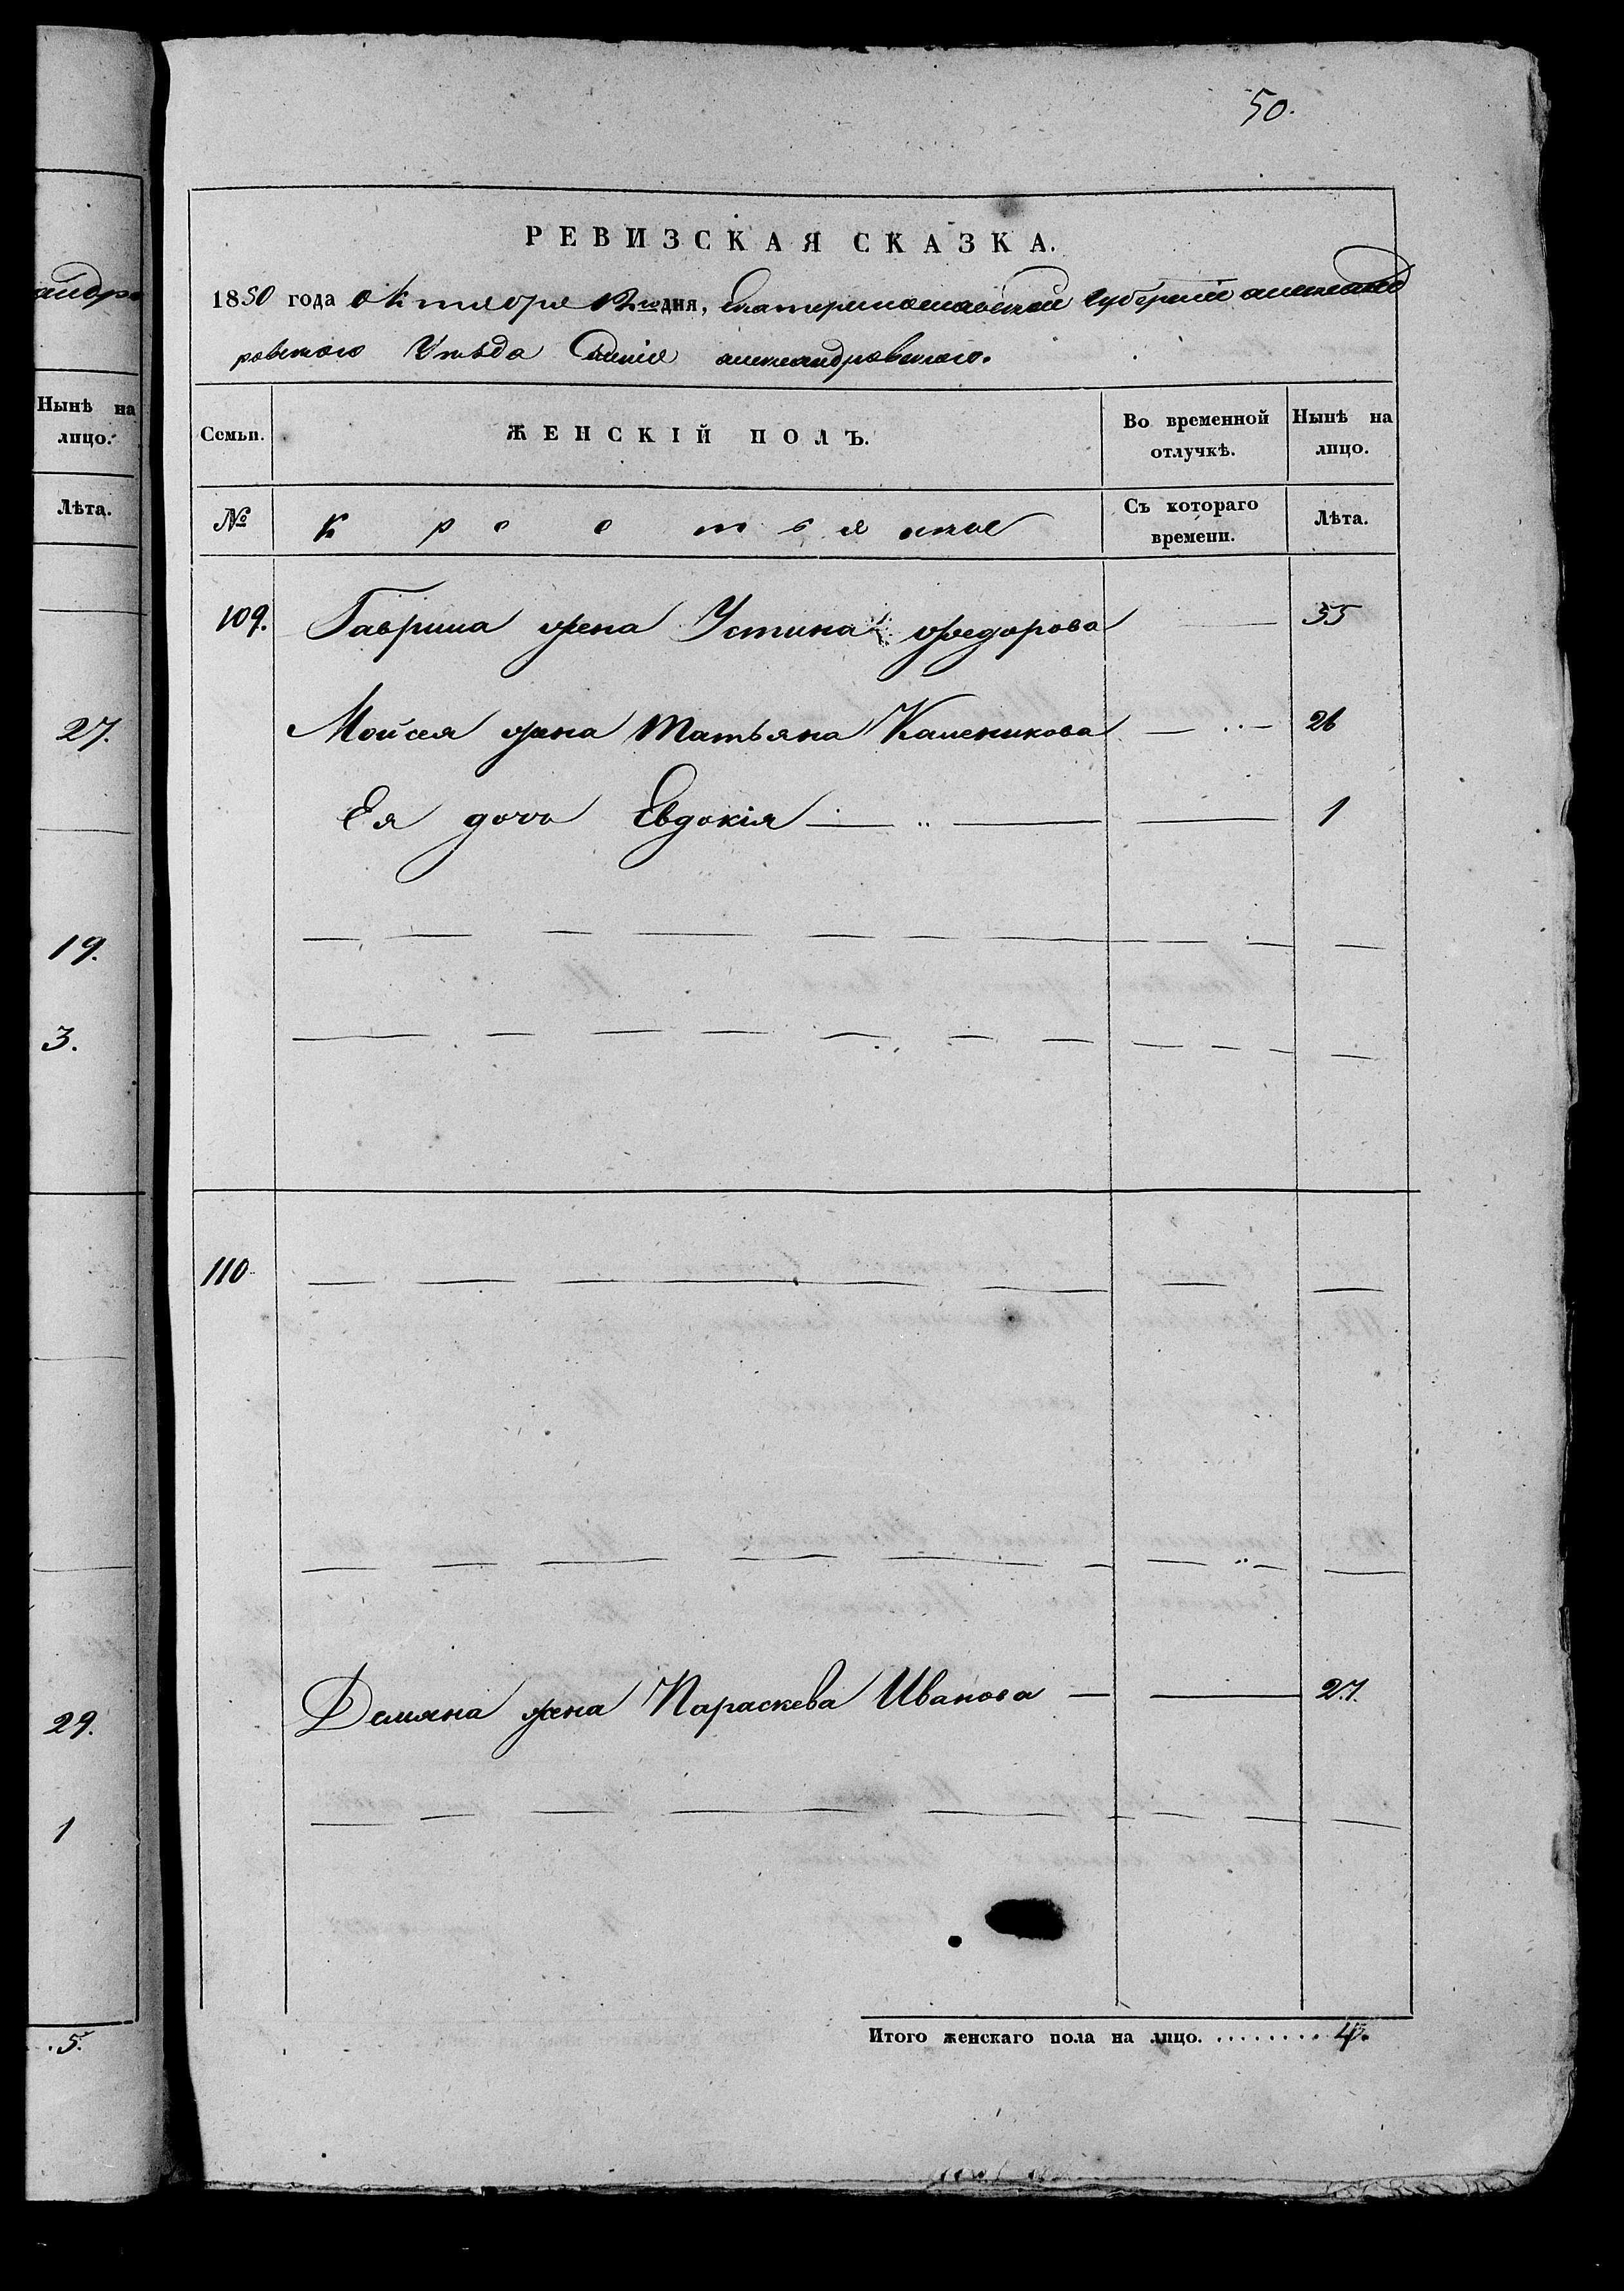 андро
Нынѣ на
лицо.
Лѣта.
27.
19.
3.
29.
1
5.
50.
РЕВИЗСКАЯ СКАЗКА.
1850 года октября 12го дня, Екатеринославской Губернии александ
ровского Уѣзда Селенія александровского.
Семьи.
ЖЕНСКІЙ ПОЛЪ.
Во временной
отлучкѣ.
Нынѣ на
лицо.
№
Крестьянкие
Съ котораго
времени.
Лѣта.
109. Гаврила жена Устина Федорова — 55
Мойсея жена Татьяна Каленикова — 26
Ея дочь Евдокія — 1
110
Демяна жена Параскева Иванова — 27.
Итого женскаго пола на лицо. . . . . . . . . 4.